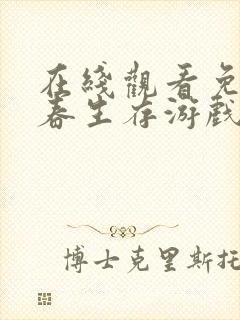 在綫觀看免
春生存游戲
博士克里斯托